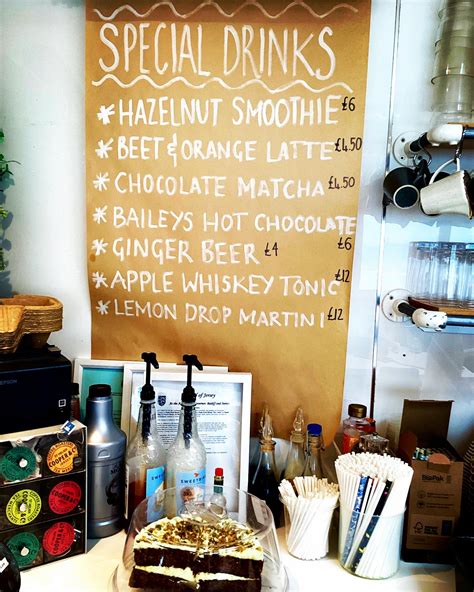 SPECIAL DRINKS
* HAZELNUT SMOOTHIE £6
* BEET & ORANGE LATTE £4.50
* CHOCOLATE MATCHA £4.50
* BAILEYS HOT CHOCOLATE £6
* GINGER BEER £4
* APPLE WHISKEY TONIC £12
* LEMON DROP MARTINI £12
of Jersey
COOPER &CO
COOPER &CO
BioPak
FSC